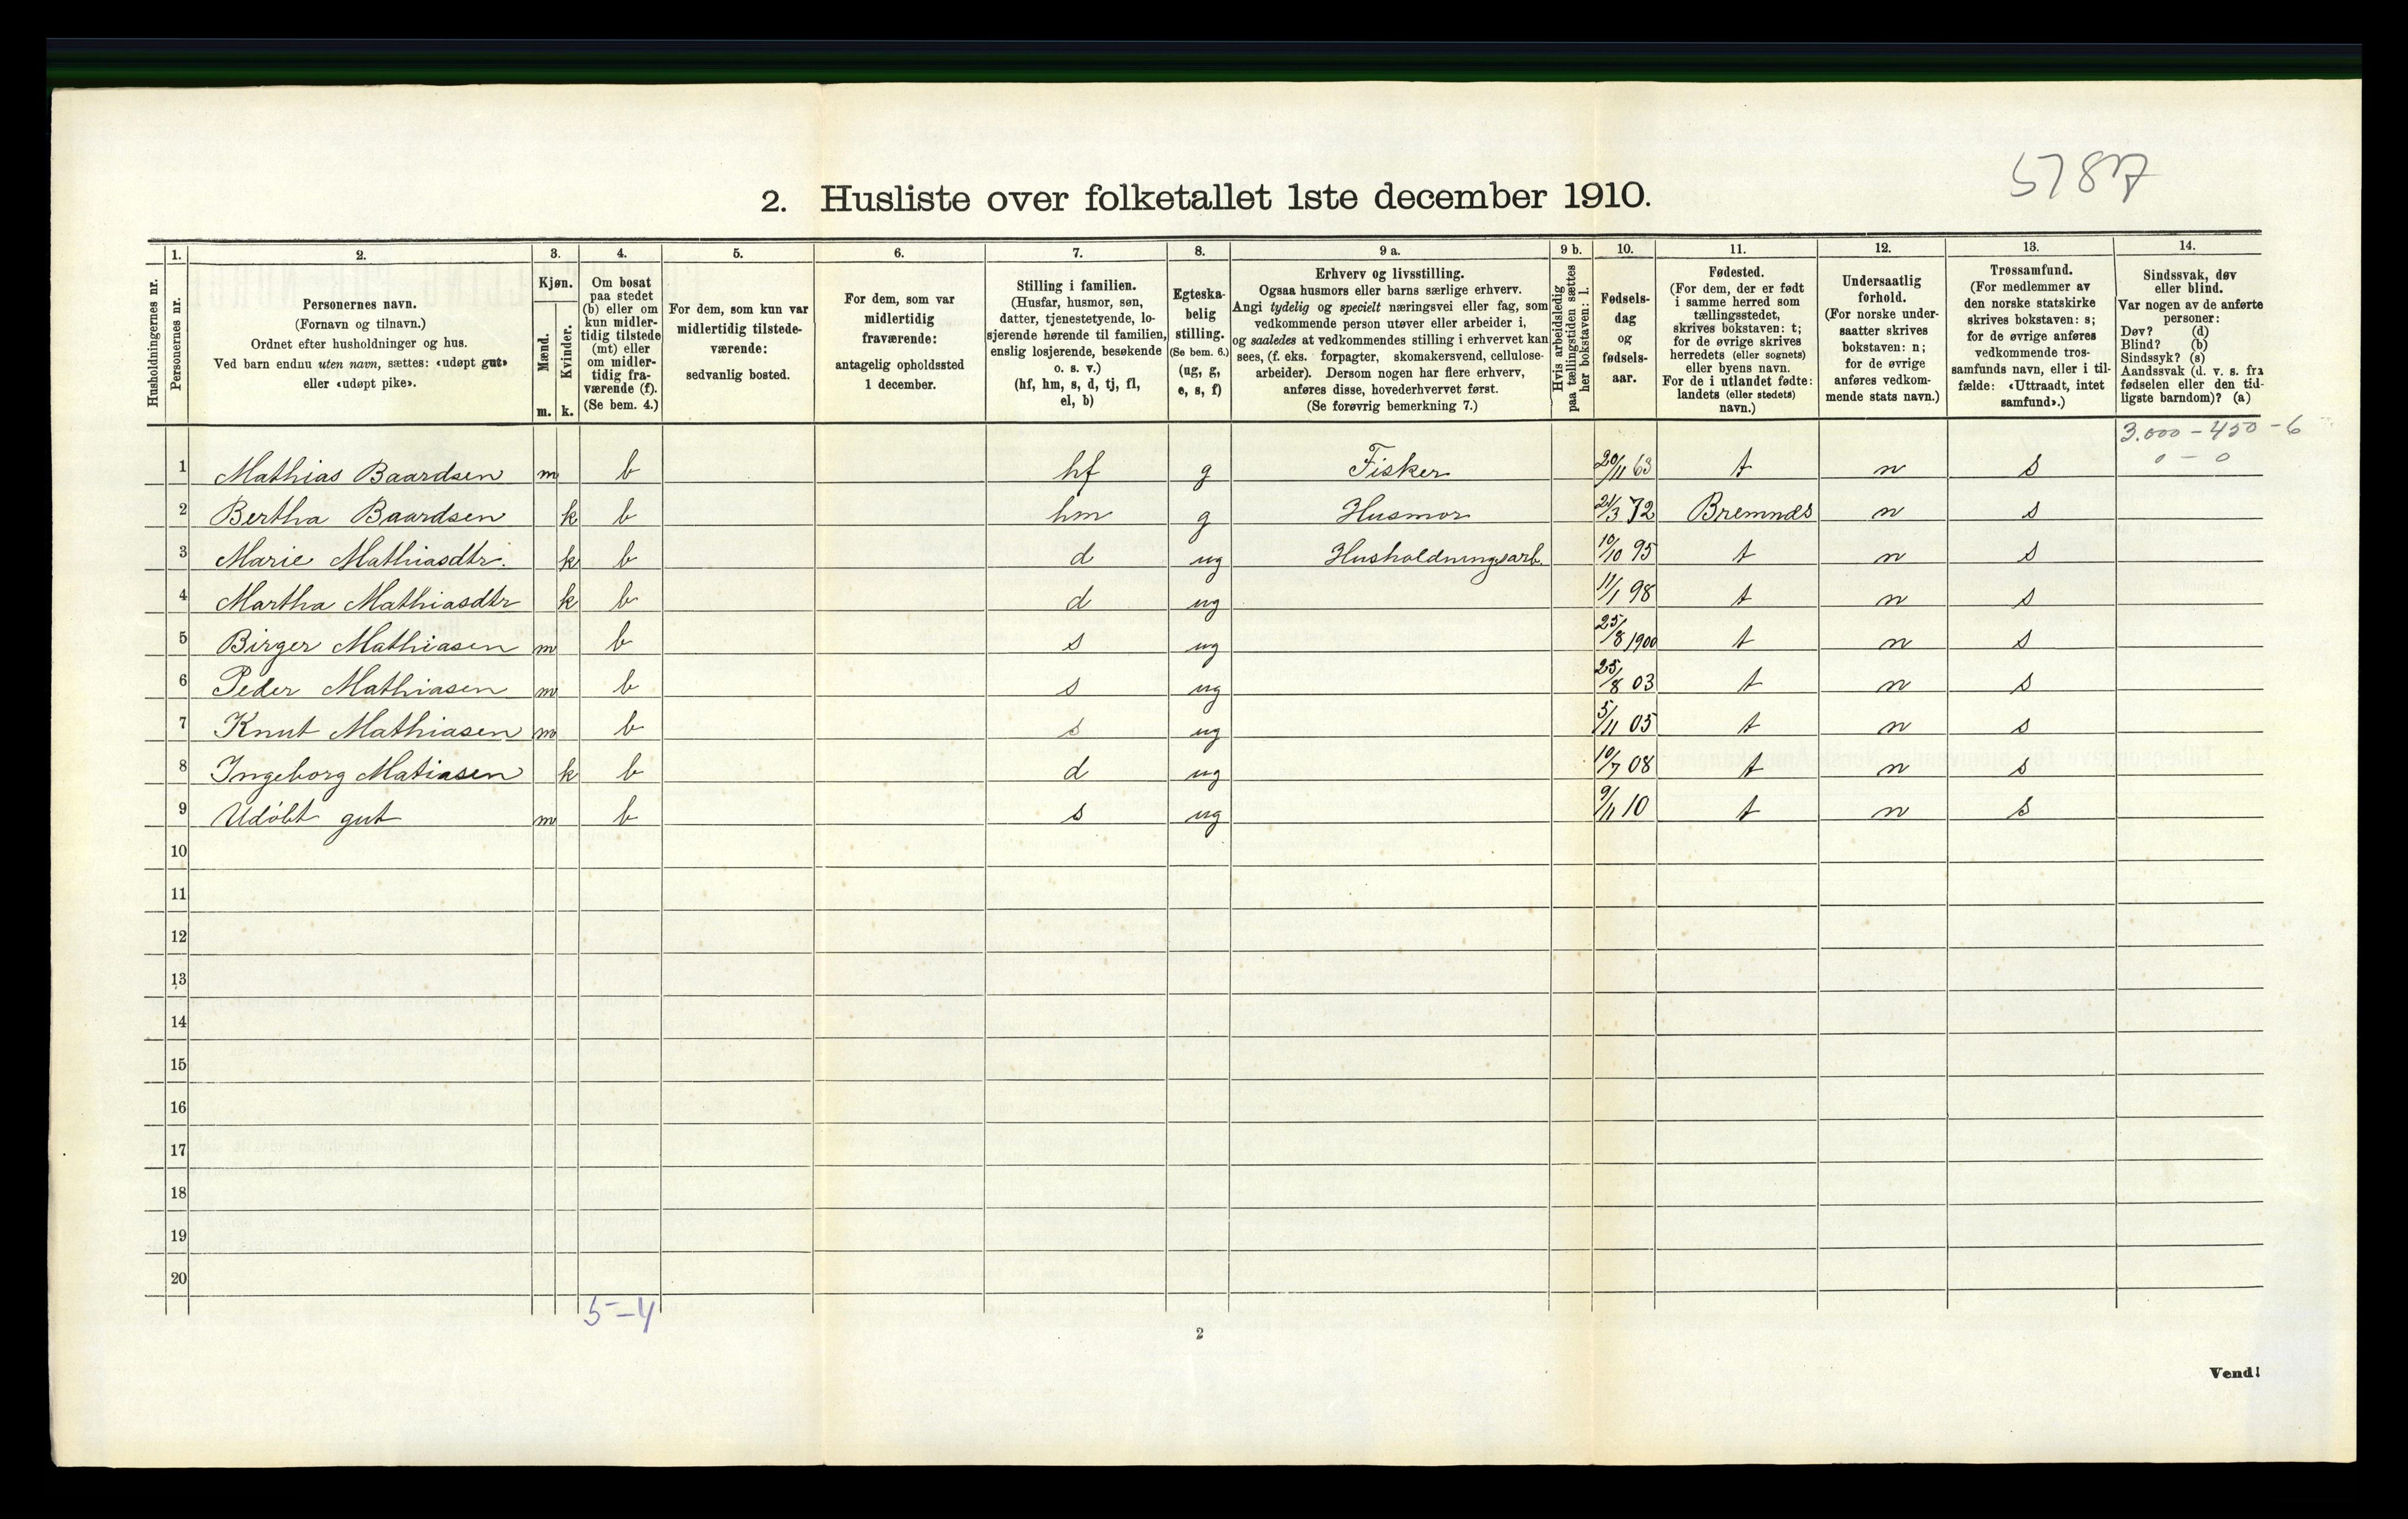 5787
2. Husliste over folketallet 1ste december 1910.
Husholdningernes nr.
1.
Personernes nr.
2.
Personernes navn.
(Fornavn og tilnavn.)
Ordnet efter husholdninger og hus.
Ved barn endnu uten navn, sættes: «udøpt gut»
eller «udøpt pike».
3.
Kjøn.
Mænd.
Kvinder.
m. k.
4.
Om bosat
paa stedet
(b) eller om
kun midler-
tidig tilstede
(mt) eller
om midler-
tidig fra-
værende (f).
(Se bem. 4.)
5.
For dem, som kun var
midlertidig tilstede-
værende:
sedvanlig bosted.
6.
For dem, som var
midlertidig
fraværende:
antagelig opholdssted
1 december.
7.
Stilling i familien.
(Husfar, husmor, søn,
datter, tjenestetyende, lo-
sjerende hørende til familien,
enslig losjerende, besøkende
o. s. v.)
(hf, hm, s, d, tj, fl,
el, b)
8.
Egteska-
belig
stilling.
(Se bem. 6.)
(ug, g,
e, s, f)
9 a.
Erhverv og livsstilling.
Ogsaa husmors eller barns særlige erhverv.
Angi tydelig og specielt næringsvei eller fag, som
vedkommende person utøver eller arbeider i,
og saaledes at vedkommendes stilling i erhvervet kan
sees, (f. eks. forpagter, skomakersvend, cellulose-
arbeider). Dersom nogen har flere erhverv,
anføres disse, hovederhvervet først.
(Se forøvrig bemerkning 7.)
9 b.
Hvis arbeidsledig
paa tællingstiden sættes
her bokstaven: l.
10.
Fødsels-
dag
og
fødsels-
aar.
11.
Fødested.
(For dem, der er født
i samme herred som
tællingsstedet,
skrives bokstaven: t;
for de øvrige skrives
herredets (eller sognets)
eller byens navn.
For de i utlandet fødte:
landets (eller stedets)
navn.)
12.
Undersaatlig
forhold.
(For norske under-
saatter skrives
bokstaven: n;
for de øvrige
anføres vedkom-
mende stats navn.)
13.
Trossamfund.
(For medlemmer av
den norske statskirke
skrives bokstaven: s;
for de øvrige anføres
vedkommende tros-
samfunds navn, eller i til-
fælde: «Uttraadt, intet
samfund».)
14.
Sindssvak, døv
eller blind.
Var nogen av de anførte
personer:
Døv? (d)
Blind? (b)
Sindssyk? (s)
Aandssvak (d. v. s. fra
fødselen eller den tid-
ligste barndom)? (a)
3.000 - 450 - 6
0 - 0
1 Mathias Baardsen m b hf g Fisker 20/11 63 t n s
2 Bertha Baardsen k b hm g Husmor 21/3 72 Bremnes n s
3 Marie Mathiasdtr. k b d ug Husholdningsarb. 10/10 95 t n s
4 Martha Mathiasdtr k b d ug 11/1 98 t n s
5 Birger Mathiasen m b s ug 25/8 1900 t n s
6 Peder Mathiasen m b s ug 25/8 03 t n s
7 Knut Mathiasen m b s ug 5/11 05 t n s
8 Ingeborg Matiasen k b d ug 10/7 08 t n s
9 Udöbt gut m b s ug 9/11 10 t n s
10
11
12
13
14
15
16
17
18
19
20
5-4
2
Vend!